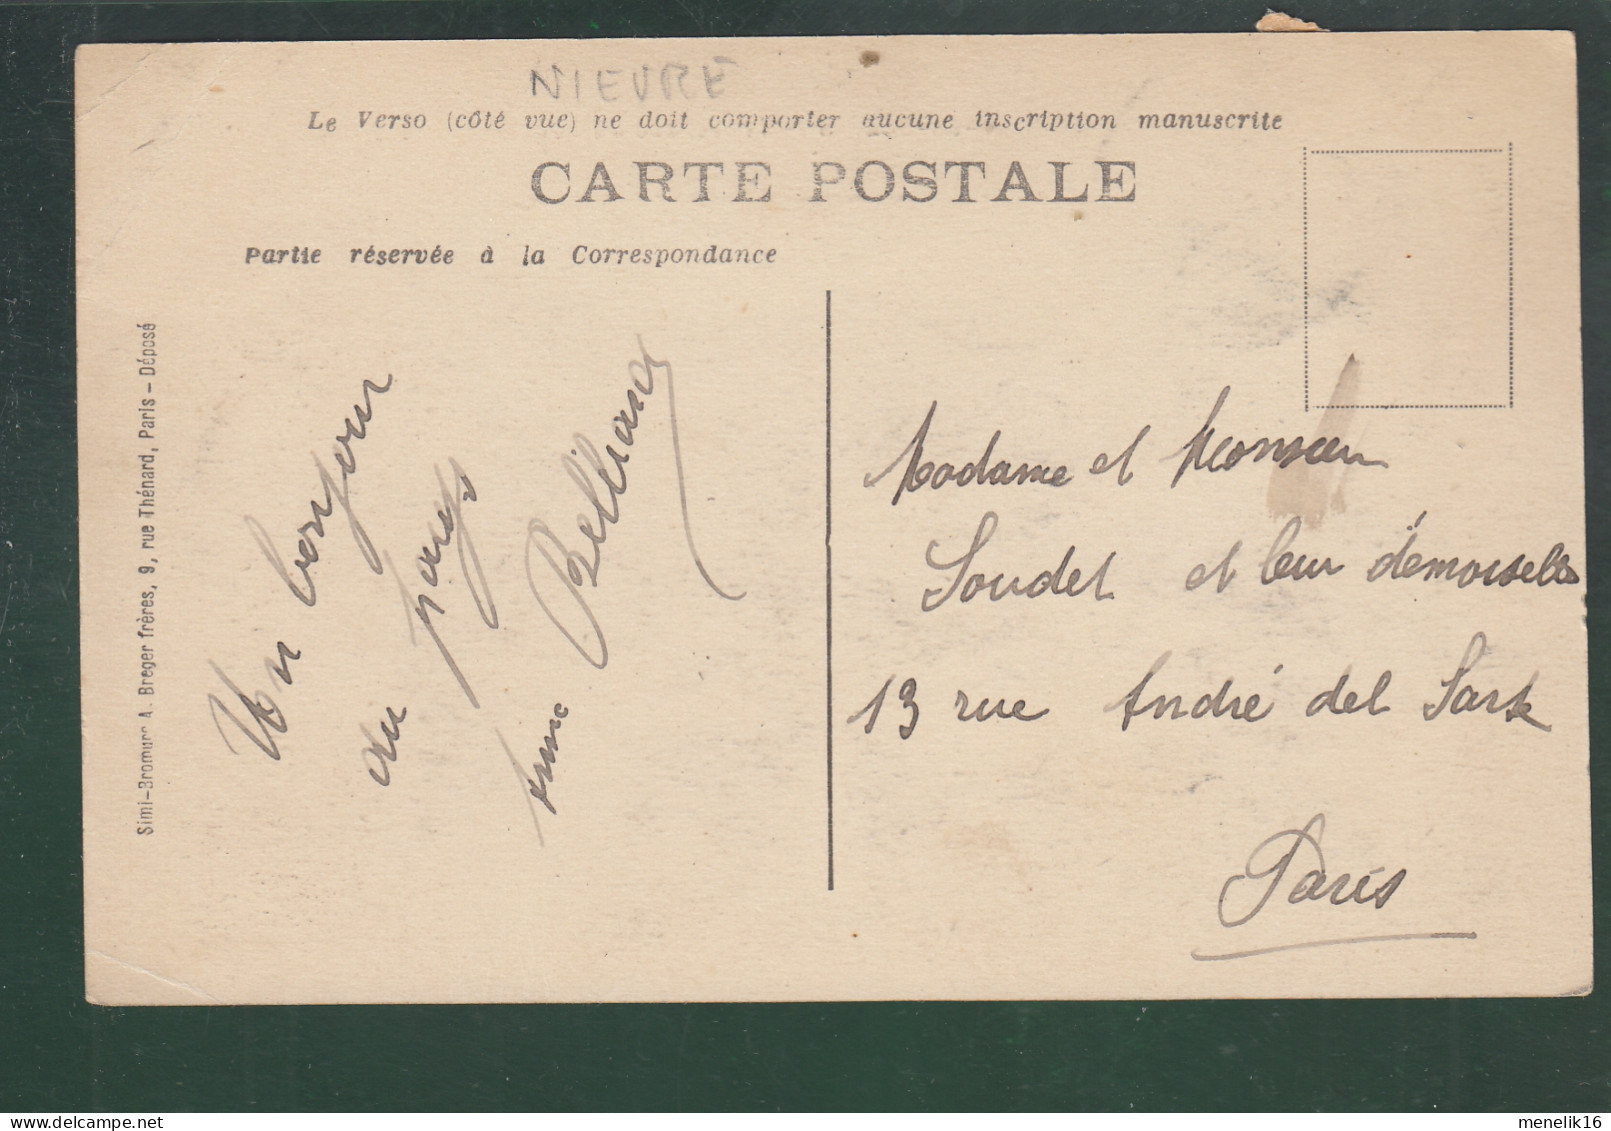 NIEVRE
Le Verso (côté vue) ne doit comporter aucune inscription manuscrite
CARTE POSTALE
Partie réservée à la Correspondance
Simi-Bromure A. Breger frères, 9, rue Thénard, Paris – Déposé
Un bonjour
du pays
Mme Bellrand
Madame et Monsieur
Soudet et leur demoiselle
13 rue André del Sarte
Paris
menelik16